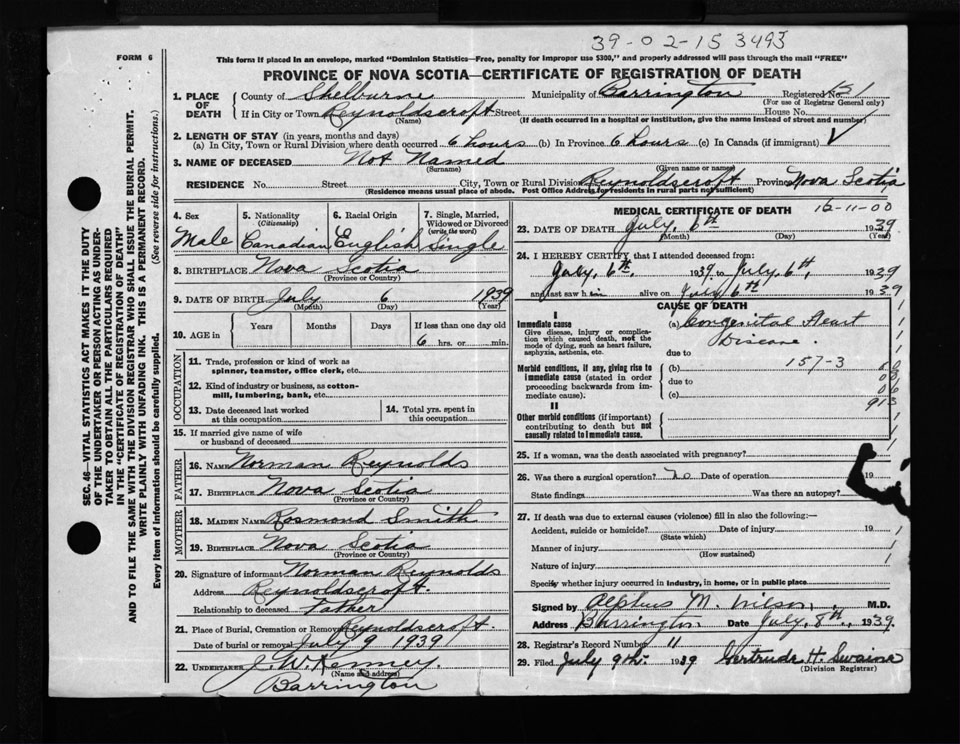 39-02-15 3493
FORM 6
This form if placed in an envelope, marked "Dominion Statistics—Free, penalty for improper use $300," and properly addressed will pass through the mail "FREE"
PROVINCE OF NOVA SCOTIA—CERTIFICATE OF REGISTRATION OF DEATH
1. PLACE OF DEATH
County of Shelburne Municipality of Barrington Registered No. 31
(For use of Registrar General only)
If in City or Town Reynoldscroft Street House No.
(Name) (If death occurred in a hospital or Institution, give the name instead of street and number)
2. LENGTH OF STAY (in years, months and days)
(a) In City, Town or Rural Division where death occurred 6 hours (b) In Province 6 hours (c) In Canada (if immigrant)
3. NAME OF DECEASED Not Named
(Surname) (Given name or names)
RESIDENCE No. Street City, Town or Rural Division Reynoldscroft Province Nova Scotia
(Residence means usual place of abode. Post Office Address for residents in rural parts not sufficient)
4. Sex
Male
5. Nationality
(Citizenship)
Canadian
6. Racial Origin
English
7. Single, Married, Widowed or Divorced
(write the word)
Single
8. BIRTHPLACE Nova Scotia
(Province or Country)
9. DATE OF BIRTH July 6 1939
(Month) (Day) (Year)
10. AGE in Years Months Days If less than one day old
6 hrs. or min.
OCCUPATION
11. Trade, profession or kind of work as
spinner, teamster, office clerk, etc.
12. Kind of industry or business, as cotton-
mill, lumbering, bank, etc.
13. Date deceased last worked
at this occupation
14. Total yrs. spent in
this occupation
15. If married give name of wife
or husband of deceased
FATHER
16. NAME Norman Reynolds
17. BIRTHPLACE Nova Scotia
(Province or Country)
MOTHER
18. MAIDEN NAME Rosmond Smith
19. BIRTHPLACE Nova Scotia
(Province or Country)
20. Signature of informant Norman Reynolds
Address Reynoldscroft.
Relationship to deceased Father
21. Place of Burial, Cremation or Removal Reynoldscroft.
Date of burial or removal July 9 1939
22. UNDERTAKER J. W. Kenney.
(Name and address)
Barrington
MEDICAL CERTIFICATE OF DEATH 16-11-00
23. DATE OF DEATH July, 6th 1939
(Month) (Day) (Year)
24. I HEREBY CERTIFY that I attended deceased from:
July, 6th 1939 to July 6th, 1939
and last saw him alive on July 6th 1939
CAUSE OF DEATH
I
Immediate cause
Give disease, injury or complica-
tion which caused death, not the
mode of dying, such as heart failure,
asphyxia, asthenia, etc.
(a) Congenital Heart
Disease.
due to
Morbid conditions, if any, giving rise to
immediate cause (stated in order
proceeding backwards from im-
mediate cause).
157-3
(b)
due to
(c)
913
II
Other morbid conditions (if important)
contributing to death but not
causally related to immediate cause.
25. If a woman, was the death associated with pregnancy?
26. Was there a surgical operation? no Date of operation 19
State findings Was there an autopsy?
27. If death was due to external causes (violence) fill in also the following:—
Accident, suicide or homicide? Date of injury 19
(State which)
Manner of injury
(How sustained)
Nature of injury
Specify whether injury occurred in industry, in home, or in public place
Signed by Alphus M. Wilson, M.D.
Address Barrington Date July, 8th, 1939.
28. Registrar's Record Number 11
29. Filed July 9th. 1939 Gertrude H. Swaine
(Division Registrar)
SEC. 46—VITAL STATISTICS ACT MAKES IT THE DUTY
OF THE UNDERTAKER OR PERSON ACTING AS UNDER-
TAKER TO OBTAIN ALL THE PARTICULARS REQUIRED
IN THE "CERTIFICATE OF REGISTRATION OF DEATH"
AND TO FILE THE SAME WITH THE DIVISION REGISTRAR WHO SHALL ISSUE THE BURIAL PERMIT.
WRITE PLAINLY WITH UNFADING INK. THIS IS A PERMANENT RECORD.
Every item of information should be carefully supplied. (See reverse side for instructions.)